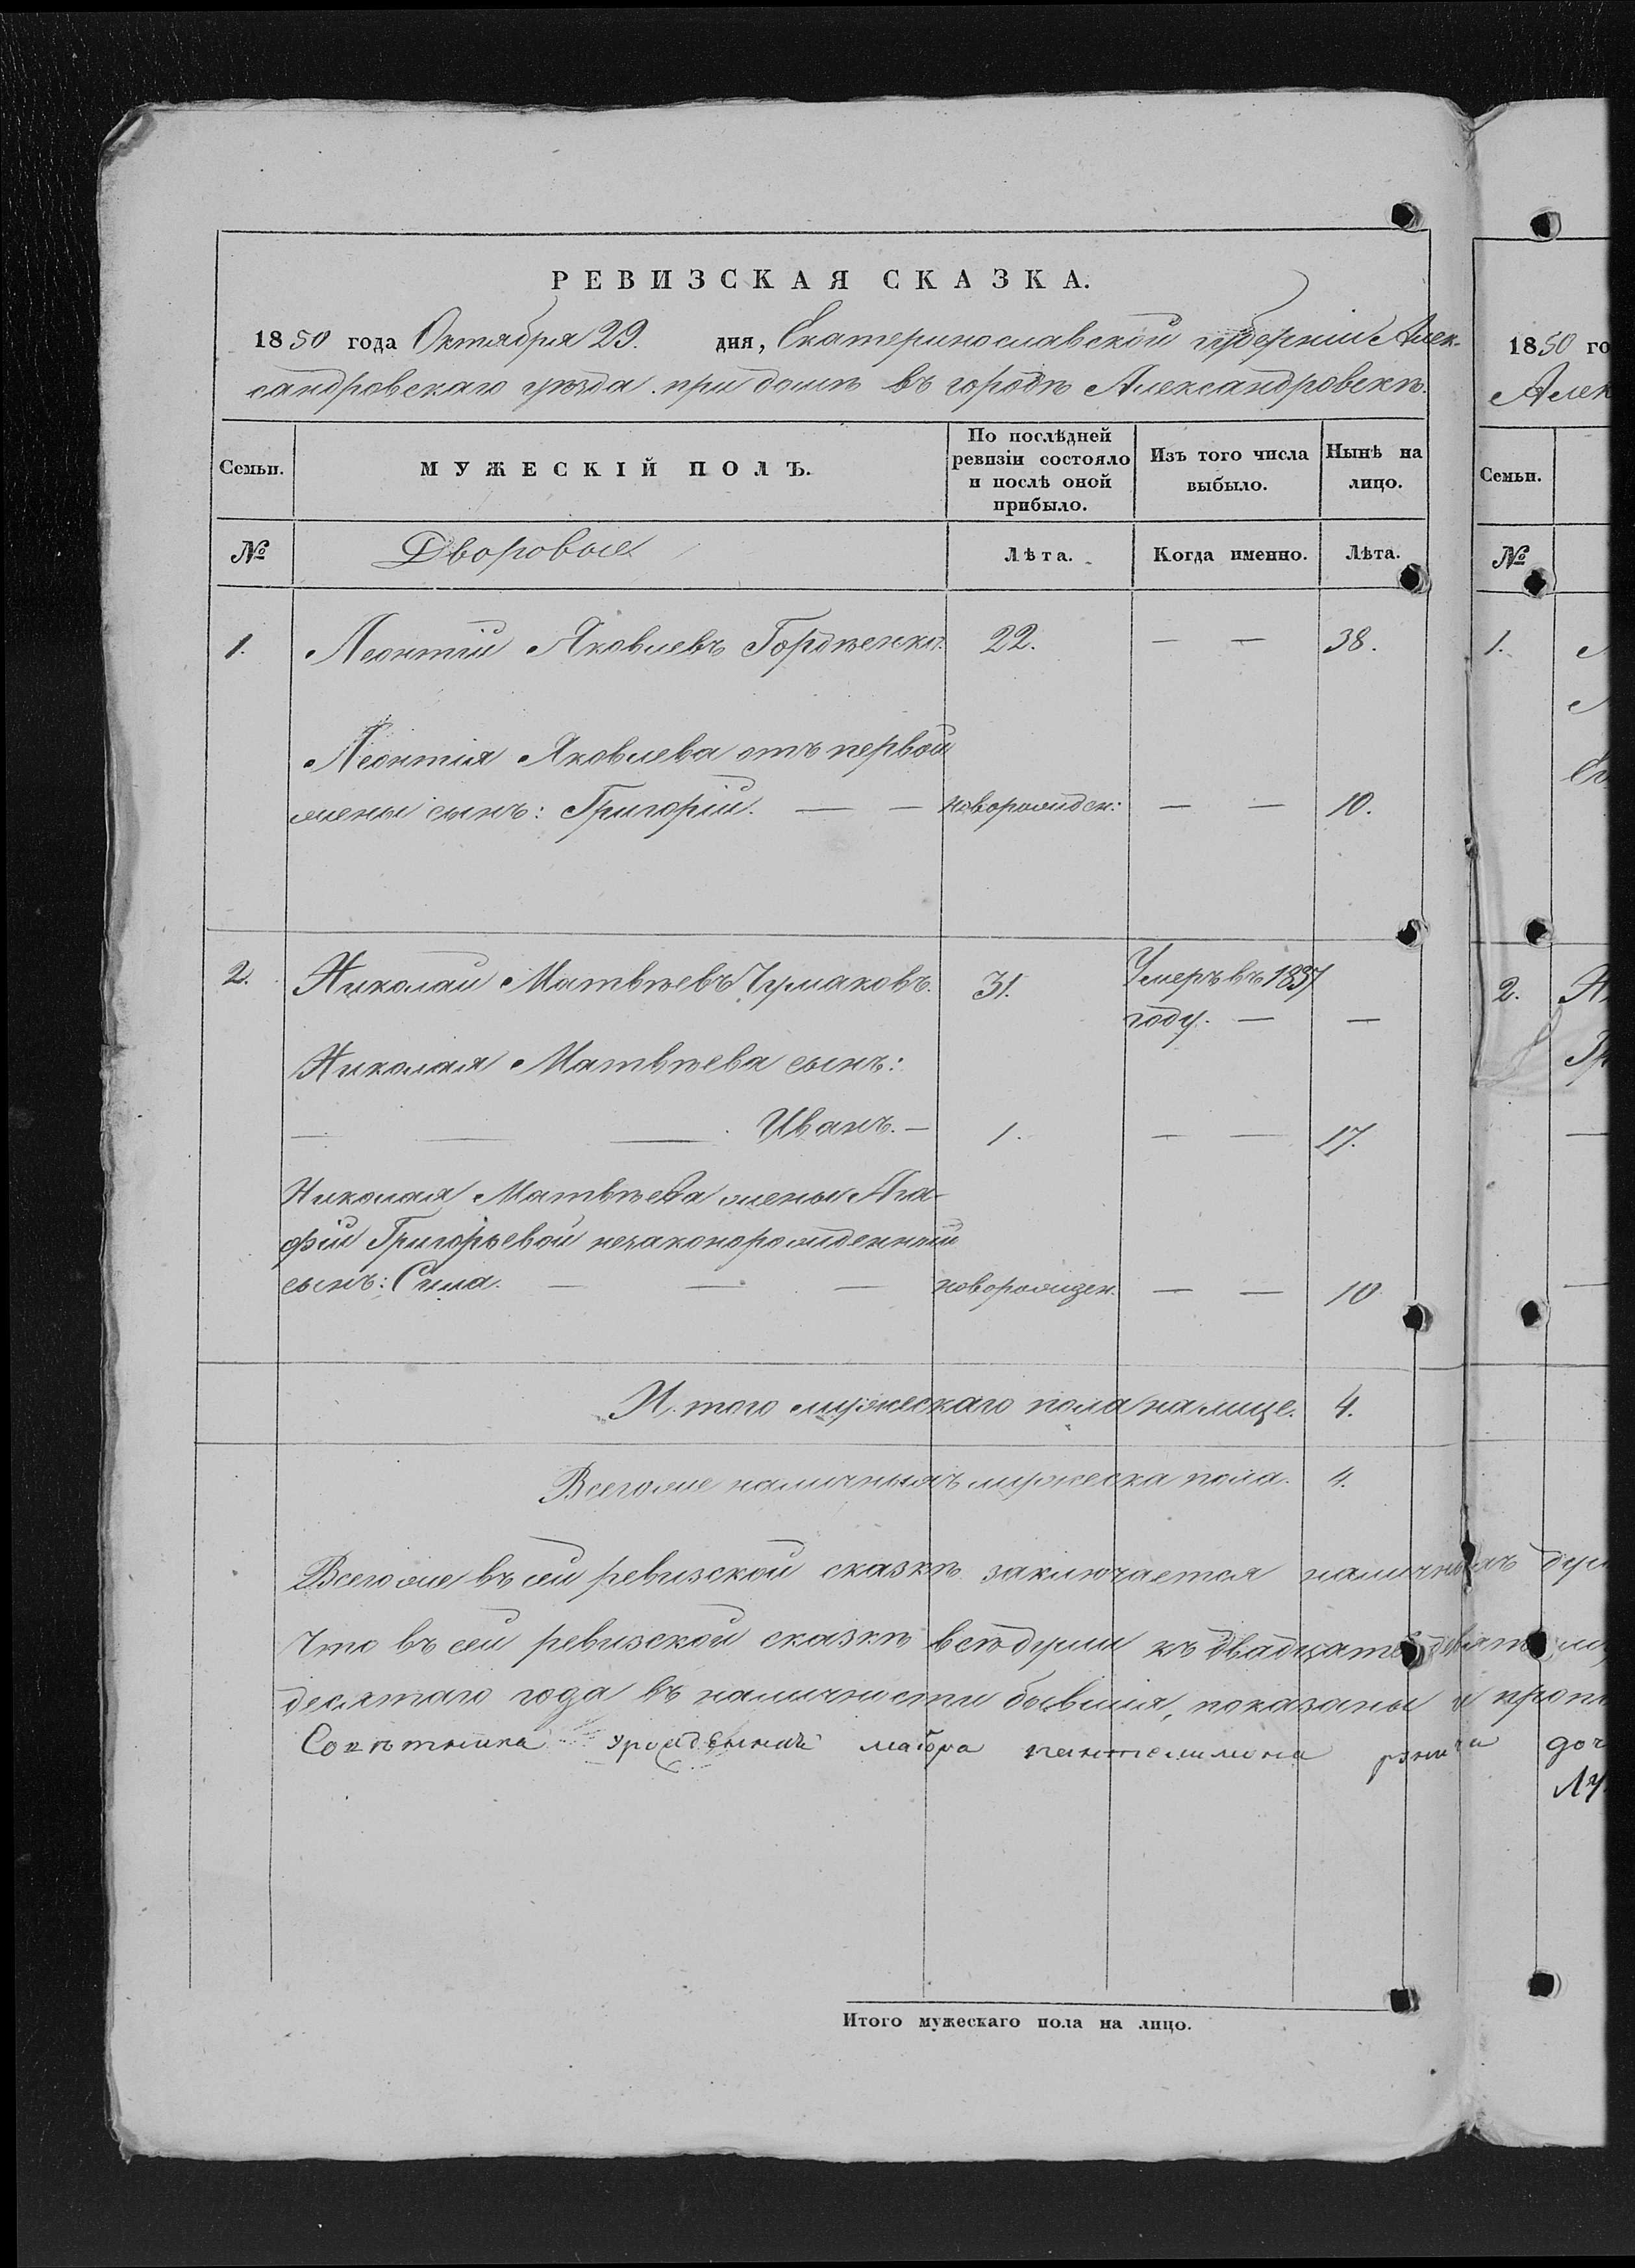 РЕВИЗСКАЯ СКАЗКА.
1850 года Октября 29. дня, Екатеринославской губерніи Алек-
сандровскаго уѣзда при домѣ въ городѣ Александровскѣ.
Семьи. МУЖЕСКІЙ ПОЛЪ. По послѣдней ревизіи состояло и послѣ оной прибыло. Изъ того числа выбыло. Нынѣ на лицо.
№ Дворовые Лѣта. Когда именно. Лѣта.
1. Леонтій Яковлевъ Гордѣенко. 22. — — 38.
Леонтія Яковлева отъ первой
жены сынъ: Григорій. — — новорожден: — — 10.
2. Николай Матвѣевъ Чумаковъ. 31. Умеръ въ 1837
году. — —
Николая Матвѣева сынъ:
— — — Иванъ. — 1. — — 17.
Николая Матвѣева жены Ага-
фіи Григорьевой незаконорожденный
сынъ: Сила. — — — новорожден. — — 10
И того мужескаго пола налице. 4.
Всего же наличныхъ мужеска пола. 4.
Всего же въ сей ревизской сказкѣ заключается наличныхъ душ
Что въ сей ревизской сказкѣ всѣ души къ двадцать девятому
десятаго года въ наличности бывшія, показаны и
Советника урожденная маіора пантелимона
Итого мужескаго пола на лицо.
1850 го
Алек
Семьи.
№
1.
2.